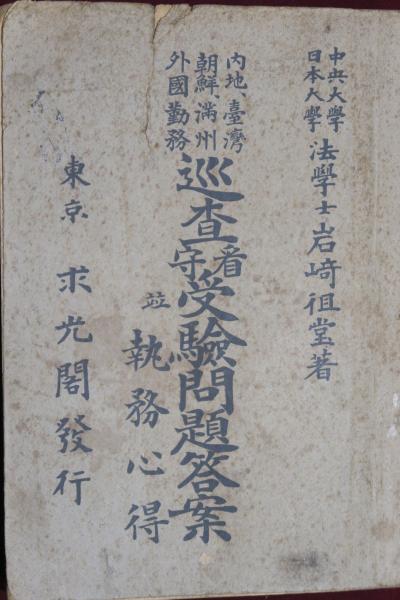 中央大學
日本大學
法學士岩﨑徂堂著
內地、臺灣
朝鮮、滿州
外國勤務
巡查看守受驗問題答案
並執務心得
東京 求光閣發行